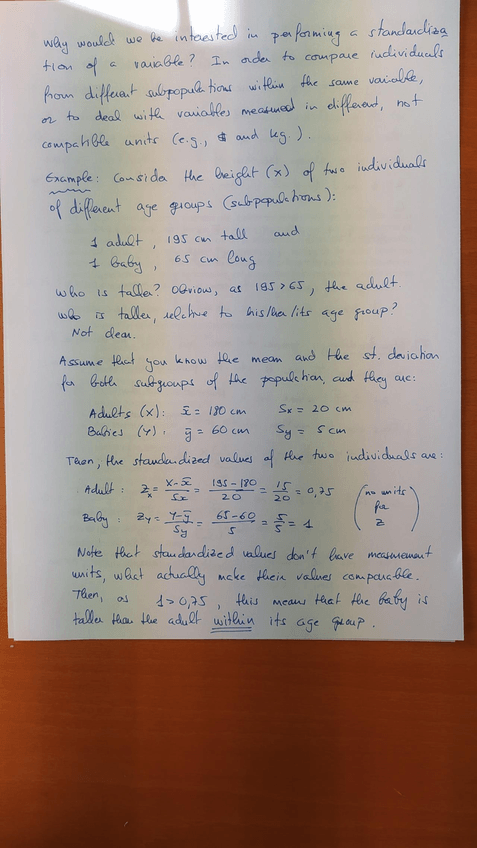 Why would we be interested in performing a standardiza
tion of a variable? In order to compare individuals
from different subpopulations within the same variable,
or to deal with variables measured in different, not
compatible units (e.g., $ and kg.).
Example: Consider the height (x) of two individuals
of different age groups (subpopulations):
1 adult, 195 cm tall and
1 baby, 65 cm long
Who is taller? Obviow, as 195 > 65, the adult.
Who is taller, relative to his/her/its age group?
Not clear.
Assume that you know the mean and the st. deviation
for both subgroups of the population, and they are:
Adults (X): x̄ = 180 cm Sx = 20 cm
Babies (Y): ȳ = 60 cm Sy = 5 cm
Then, the standardized values of the two individuals are:
Adult: Zx = (X-x̄)/Sx = (195-180)/20 = 15/20 = 0,75 (no units
Baby: Zy = (Y-ȳ)/Sy = (65-60)/5 = 5/5 = 1 for z)
Note that standardized values don't have measurement
units, what actually make their values comparable.
Then, as 1 > 0,75, this means that the baby is
taller than the adult within its age group.